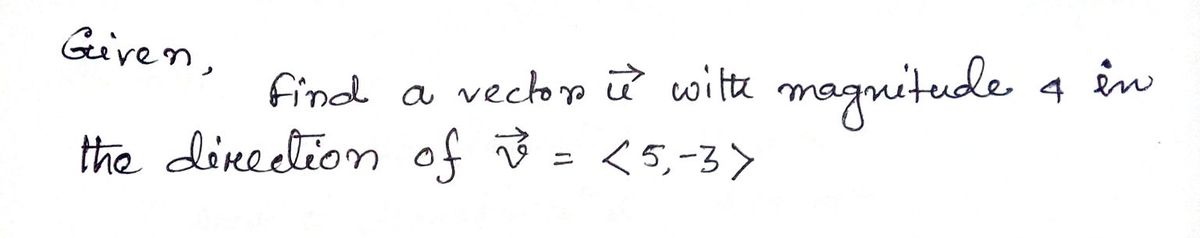 Given,
find a vector u⃗ with magnitude 4 in
the direction of v⃗ = <5,-3>